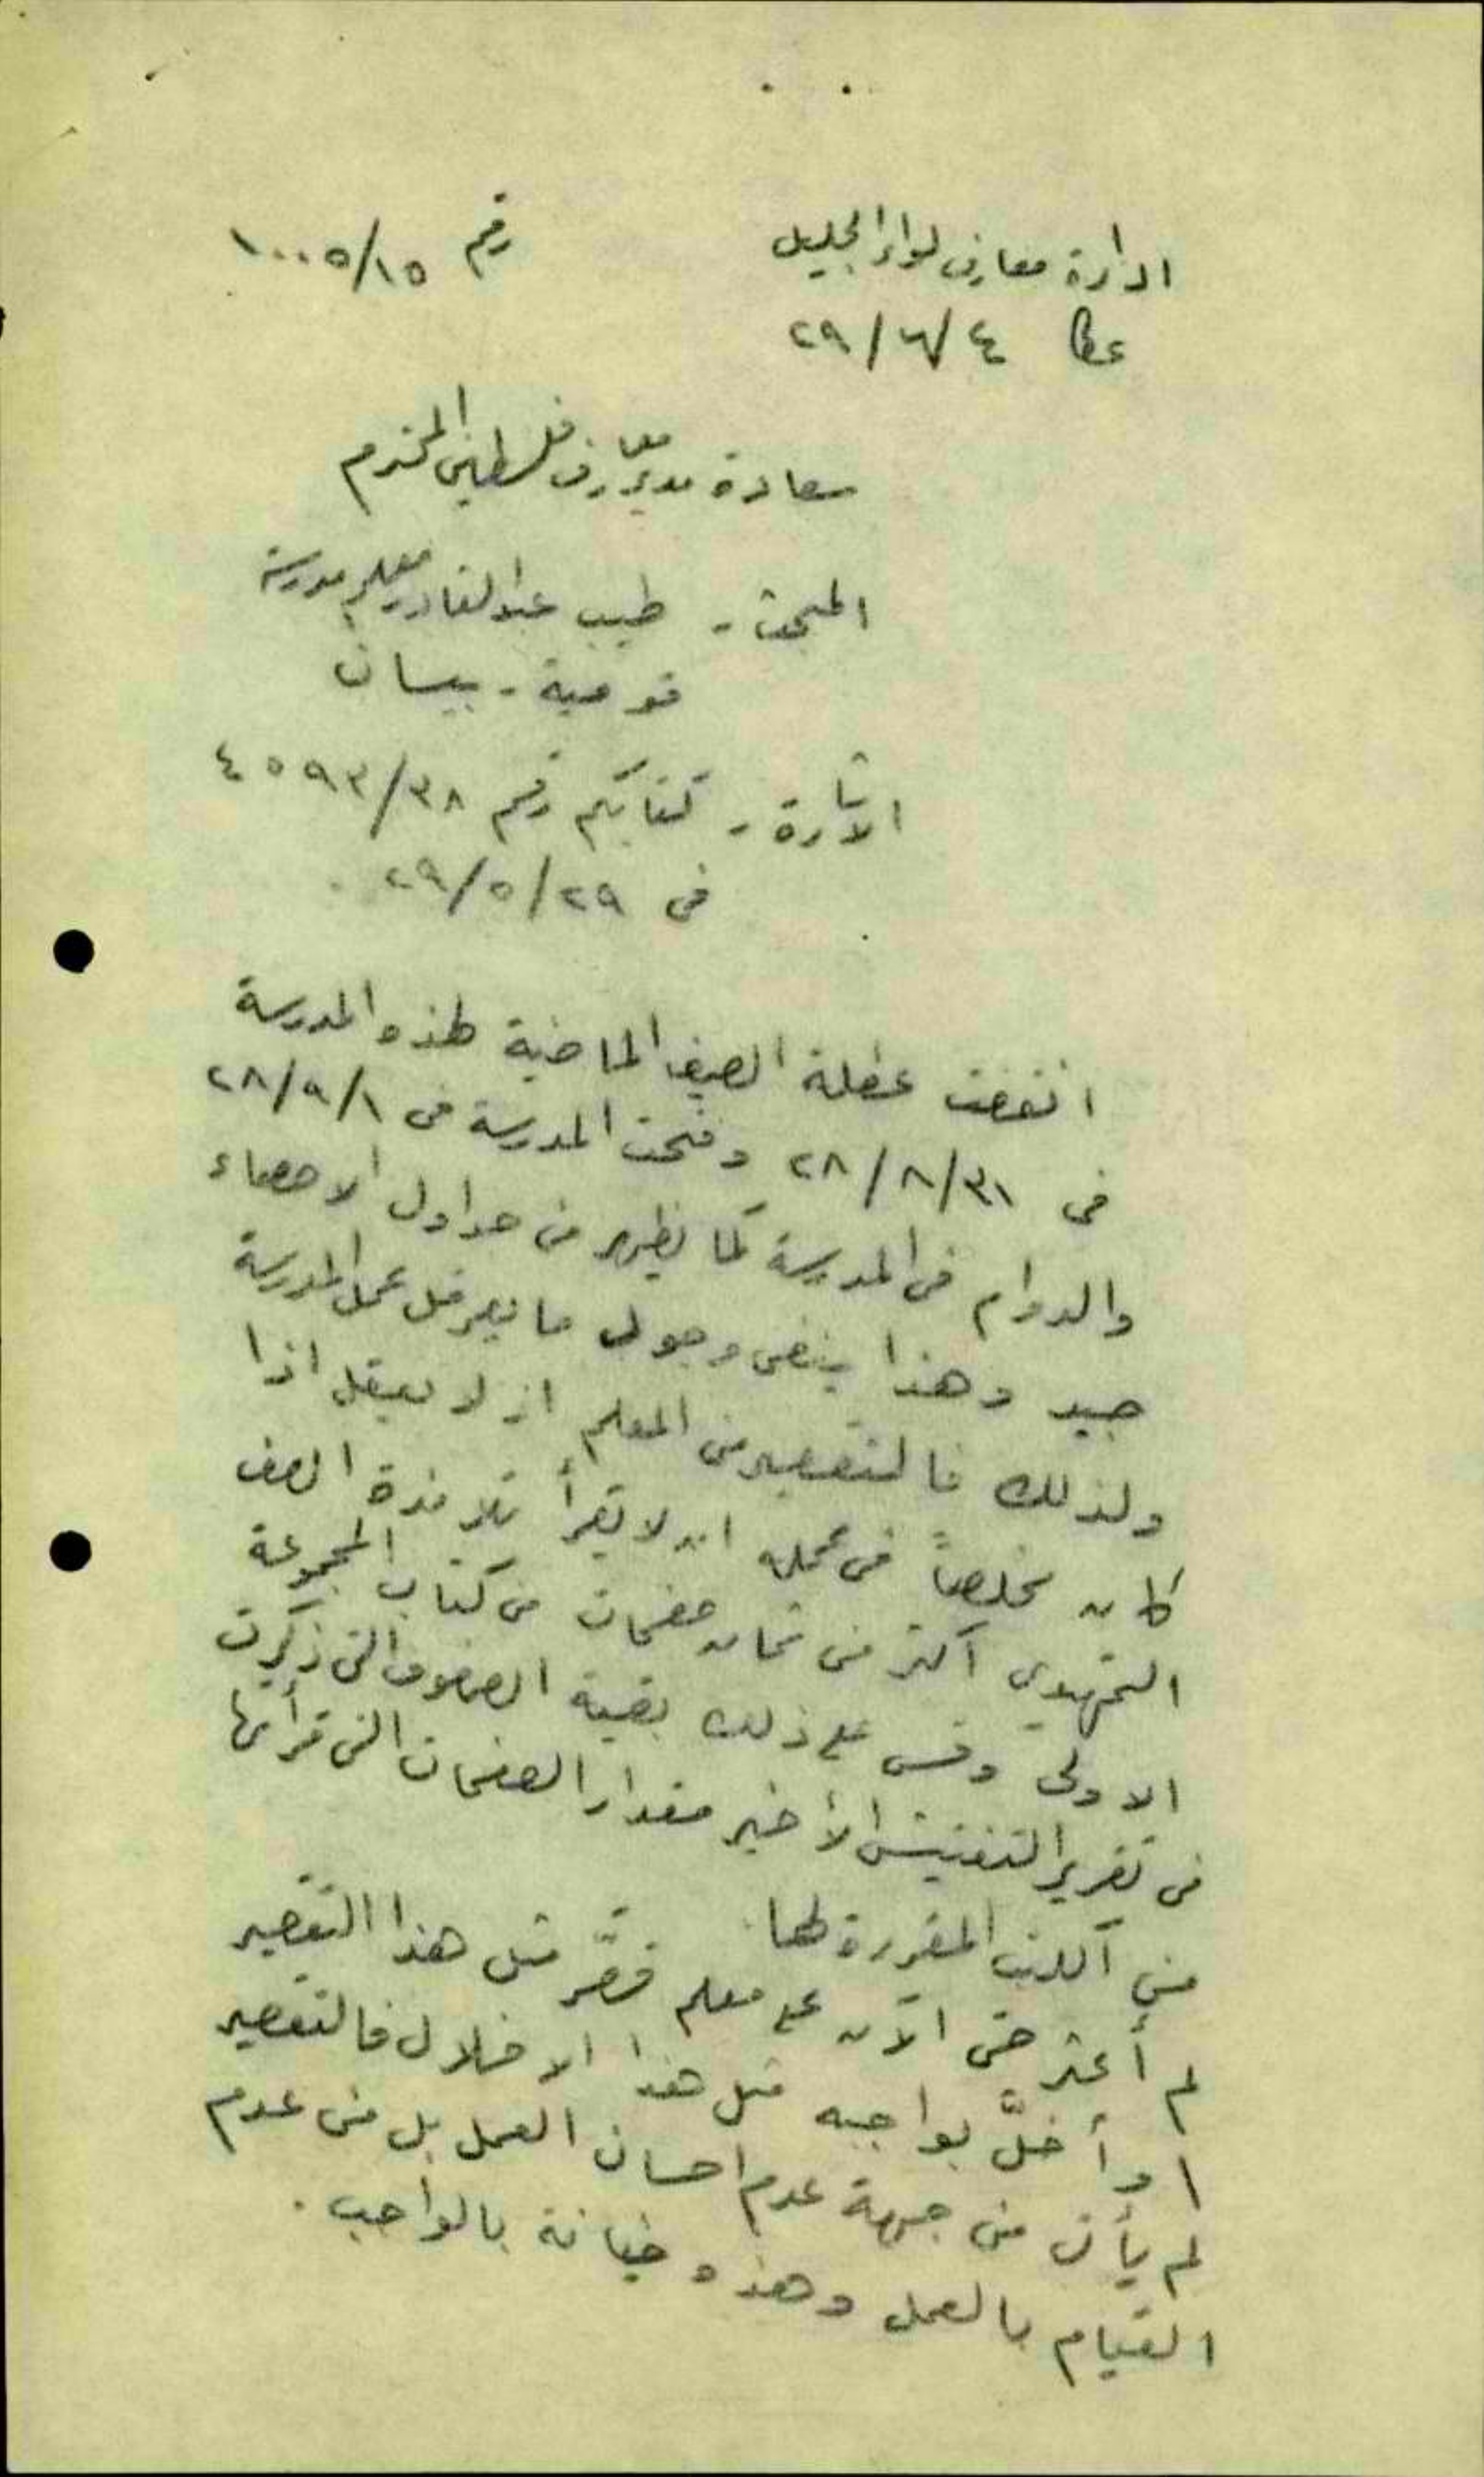 ادارة معارف لواء الجليل
رقم ١٠٠٥/١٥
عكا ٤/٦/٢٩
سعادة مدير معارف فلسطين المحترم
المبحث - طيب عبد القادر معلم مدرسة
قومية - بيسان
الاشارة - كتابكم رقم ٤٥٩٣/٣٨
في ٢٩/٥/٢٩
انقضت عطلة الصيف الماضية لهذه المدرسة
في ٣١/٨/٢٨ وفتحت المدرسة في ١/٩/٢٨
والدوام في المدرسة كما يظهر من جداول الاحصاء
جيد وهذا ينفي وجود ما يعرقل عمل المدرسة
ولذلك فالتقصير من المعلم اذ لا يعقل اذا
كان مخلصاً في عمله ان لا يقرأ تلامذة الصف
التمهيدي اكثر من ثمان صفحات من كتاب المجموعة
الاولى وقس على ذلك بقية الصفوف التي ذكرت
في تقرير التفتيش الأخير مقدار الصفحات التي قرأتها
من الكتب المقررة لها
لم أعثر حتى الآن على معلم قصَّر مثل هذا التقصير
او أخلَّ بواجبه مثل هذا الاخلال فالتقصير
لم يأت من جهة عدم احسان العمل بل من عدم
القيام بالعمل وهذه خيانة بالواجب .